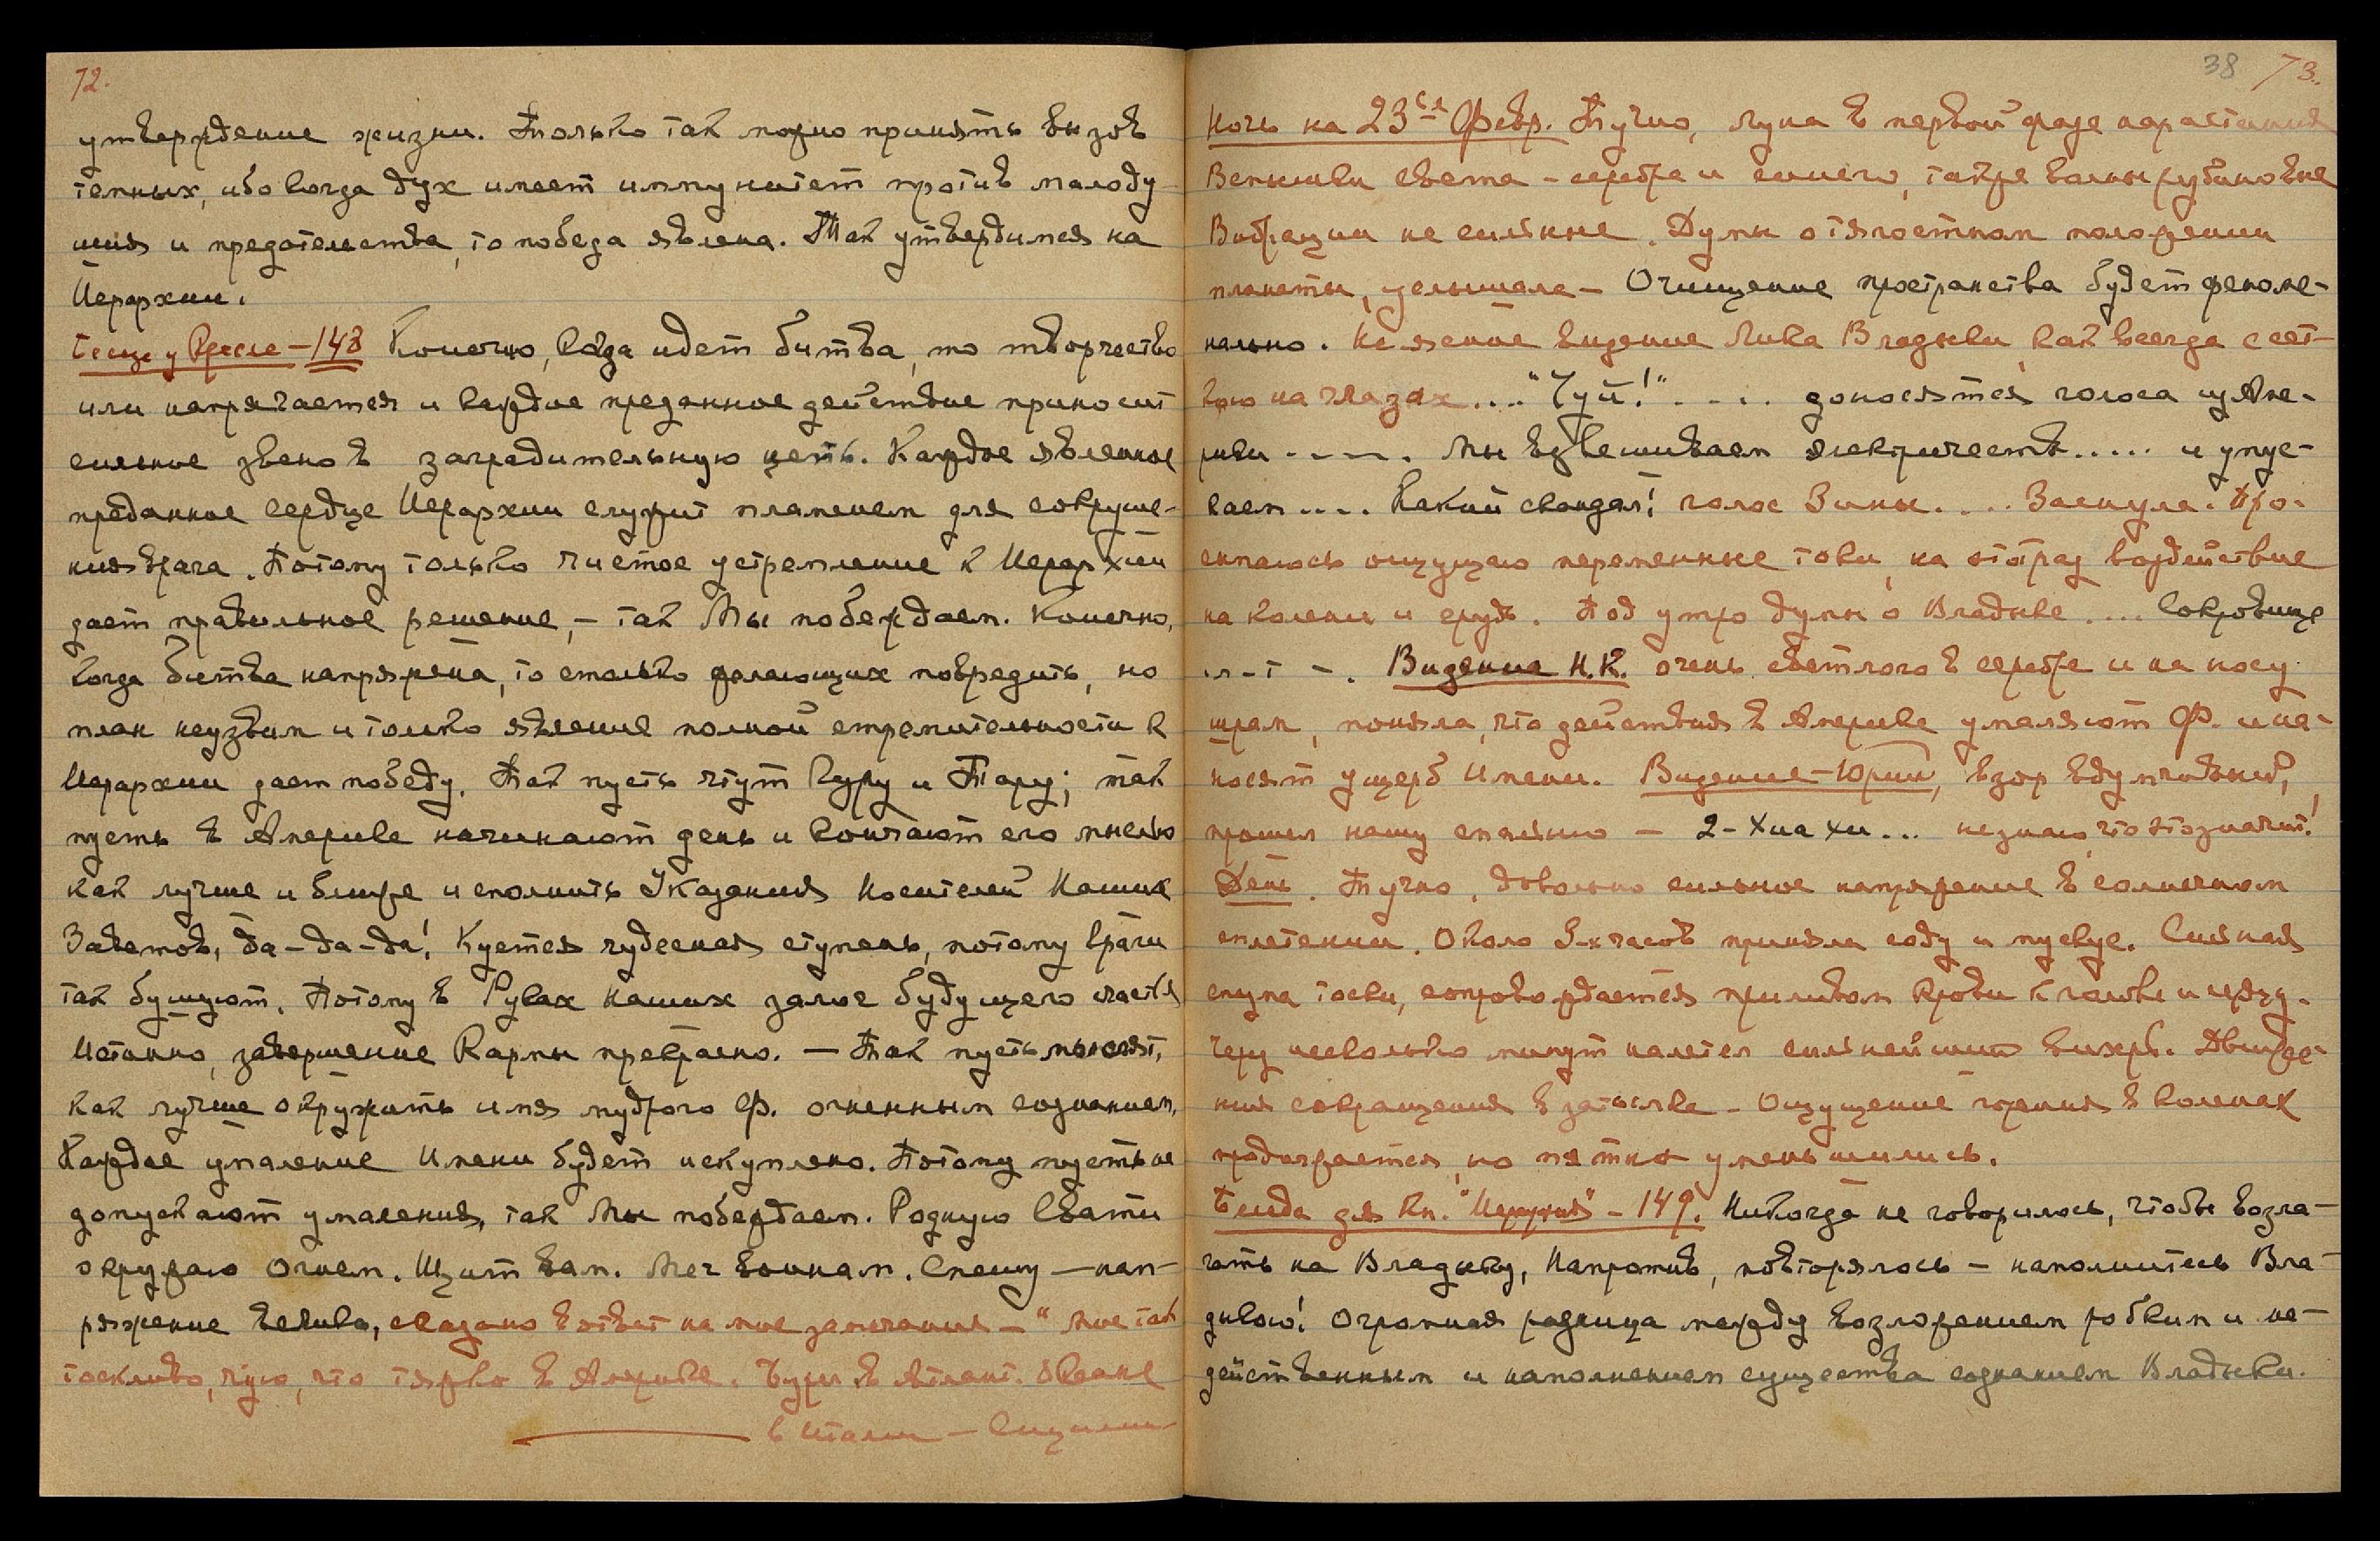 72.
утверждение жизни. Только так можно принять вызов
темных, ибо когда дух имеет иммунитет против малоду-
шия и предательства, то победа явлена. Так утвердимся на
Иерархии.
148 Конечно, когда идет битва, то творчество
или напрягается и каждое преданное действие приносит
сильное звено в заградительную цепь. Каждое явленное
преданное сердце Иерархии служит пламенем для сокруше-
ния врага. Потому только чистое устремление к Иерархии
дает правильное решение, – так Мы побеждаем. Конечно,
когда битва напряжена, то столько желающих повредить, но
план неуязвим и только явление полной стремительности к
Иерархии дает победу. Так пусть чтут Гуру и Тару; так
пусть в Америке начинают день и кончают его мыслью
как лучше и ближе исполнить Указания Носителей Наших
Заветов, да-да-да! Куется чудесная ступень, потому враги
так бушуют. Потому в Руках наших залог будущего счастья
Истинно, завершение Кармы прекрасно. – Так пусть мыслят,
как лучше окружить имя мудрого Ф. огненным сознанием,
Каждое умаление Имени будет искуплено. Потому пусть не
допускают умаления, так Мы побеждаем. Родную Свати
окружаю Огнем. Щит вам. Меч воинам. Спешу – нап-
ряжение велико, сказано в ответ на мое замечание – "Мне так
тоскливо, чую, что тяжко в Америке. Бури в Атлант. океане
в Италии – Сицилии
38 73.
Ночь на 23ье Февр. Тучно, луна в первой фазе нарастания
Вспышки света – серебра и синего, также волны рубиновые
Вибрации не сильные. Думы о тягостном положении
планеты, услышала – Очищение пространства будет феноме-
нально. Неясное видение Лика Владыки, как всегда с сет-
кою на глазах.... "Чуй!" .... доносятся голоса из Аме-
рики ----. Мы взвешиваем электричеств..... и упус-
каем.... Какой скандал! голос Зины.... Заснула. Про-
снулась ощущаю переменные токи, на этот раз воздействие
на колени и грудь. Под утро думы о Владыке.... Сокровище
Видение Н.К. очень светлого в серебре и на носу
шрам, поняла, что действия в Америке умаляют Ф. и на-
носят ущерб Имени. Видение – Юрий, взор вдумчивый,
прошел нашу спальню – 2-Хиа хи... не знаю, что это значит!
День. Тучно, довольно сильное напряжение в солнечном
сплетении. Около 5-и часов приняла соду и мускус. Сильная
тоски, сопровождается приливом крови к голове и сердцу.
Через несколько минут налетел сильнейший вихрь.
сокращения в затылке – Ощущение горения в коленах
продолжается, но пятна уменьшились.
Беседа для Кн. "Иерархия" – 149. Никогда не говорилось, чтобы возла-
гать на Владыку, Напротив, повторялось – наполнитесь Вла-
дыкою! Огромная разница между возложением робким и не-
действенным и наполнением существа сознанием Владыки.